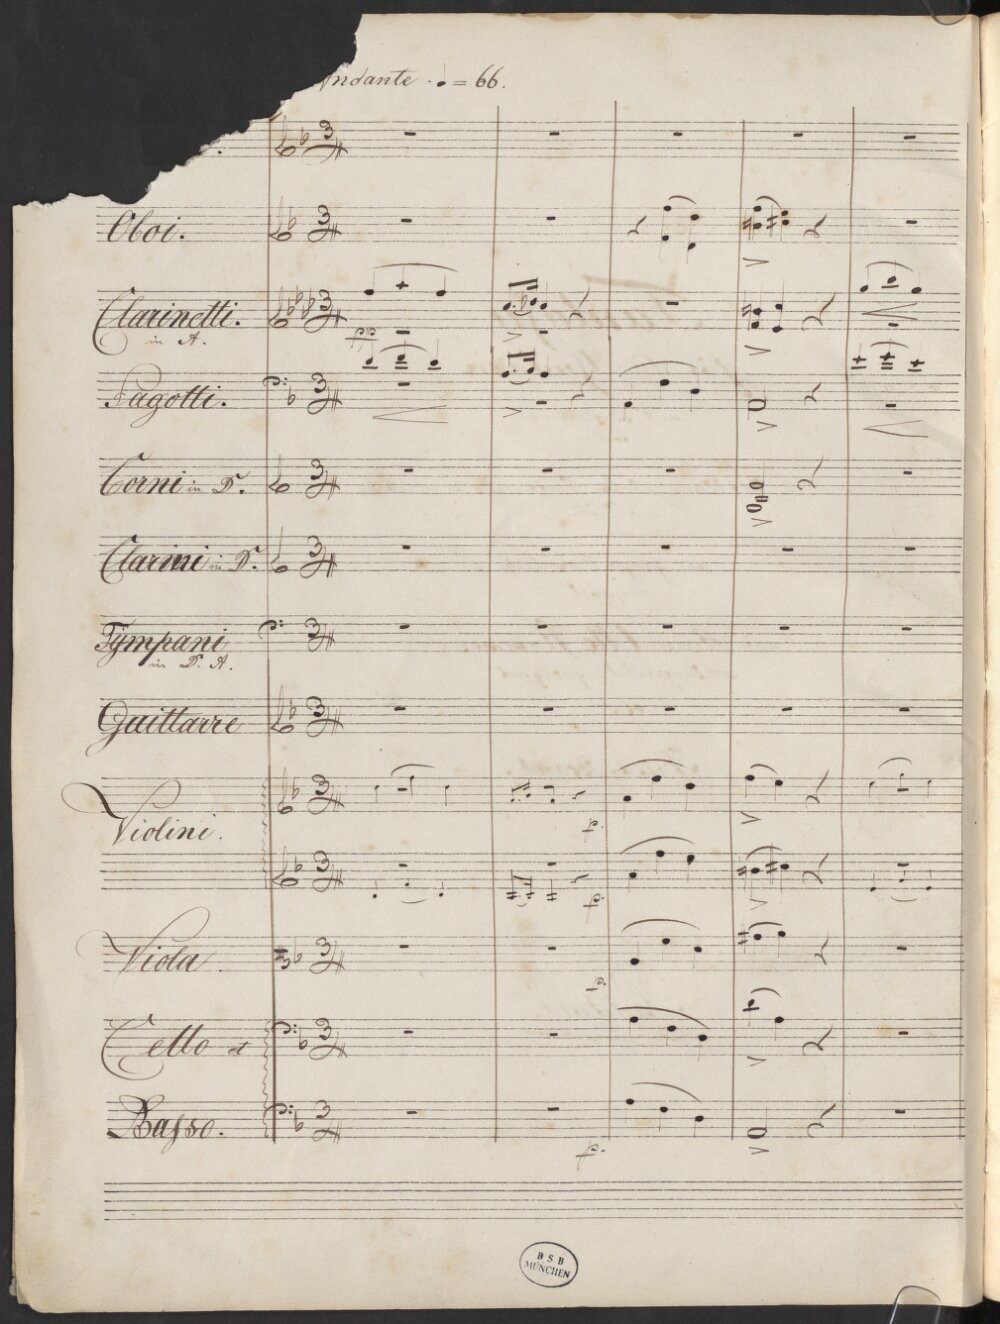 ndante . ♩ = 66.
Oboi.
Clarinetti.
in A.
pp
Fagotti.
Corni in D.
Clarini in D.
Tÿmpani
in D. A.
Guittarre
Violini.
p.
p.
Viola.
p.
Cello et
Basso.
p.
BSB
MÜNCHEN